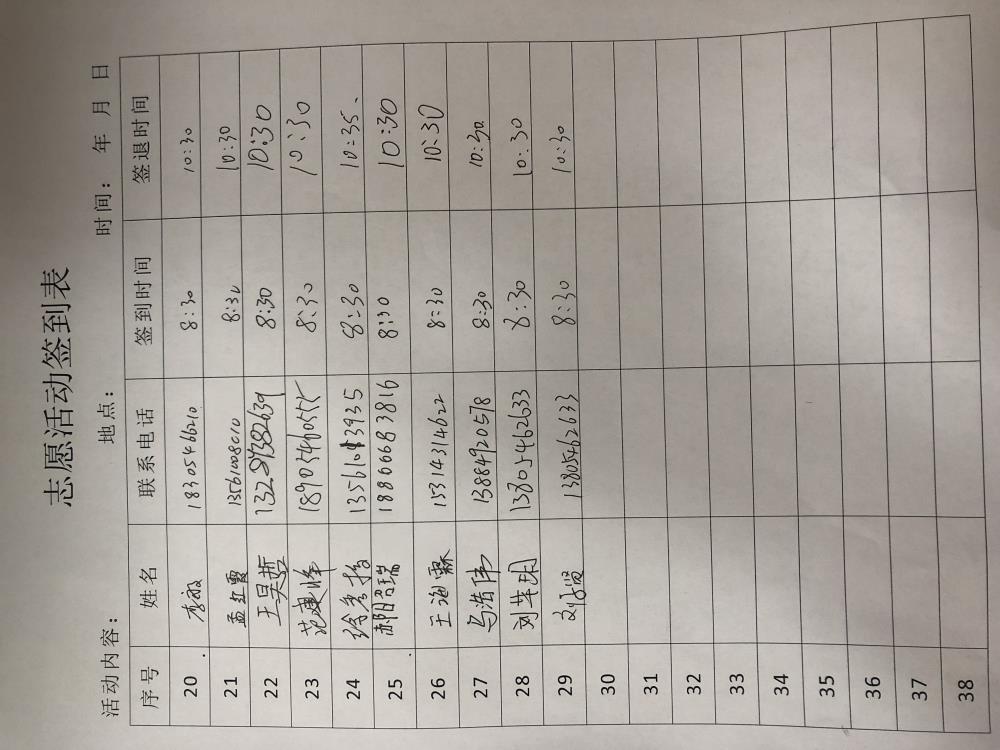 志愿活动签到表
活动内容： 地点： 时间： 年 月 日
序号 姓名 联系电话 签到时间 签退时间
20 李敏 18305466210 8:30 10:30
21 孟红霞 13561008010 8:30 10:30
22 王昊哲 8:30 10:30
23 范建峰 18905460555 8:30 10:30
24 8:30 10:35、
25 18866683816 8:30 10:30
26 王海霖 15314314622 8:30 10:30
27 马浩伟 13884920578 8:30 10:30
28 刘苹玥 13805462633 8:30 10:30
29 13805462633 8:30 10:30
30
31
32
33
34
35
36
37
38